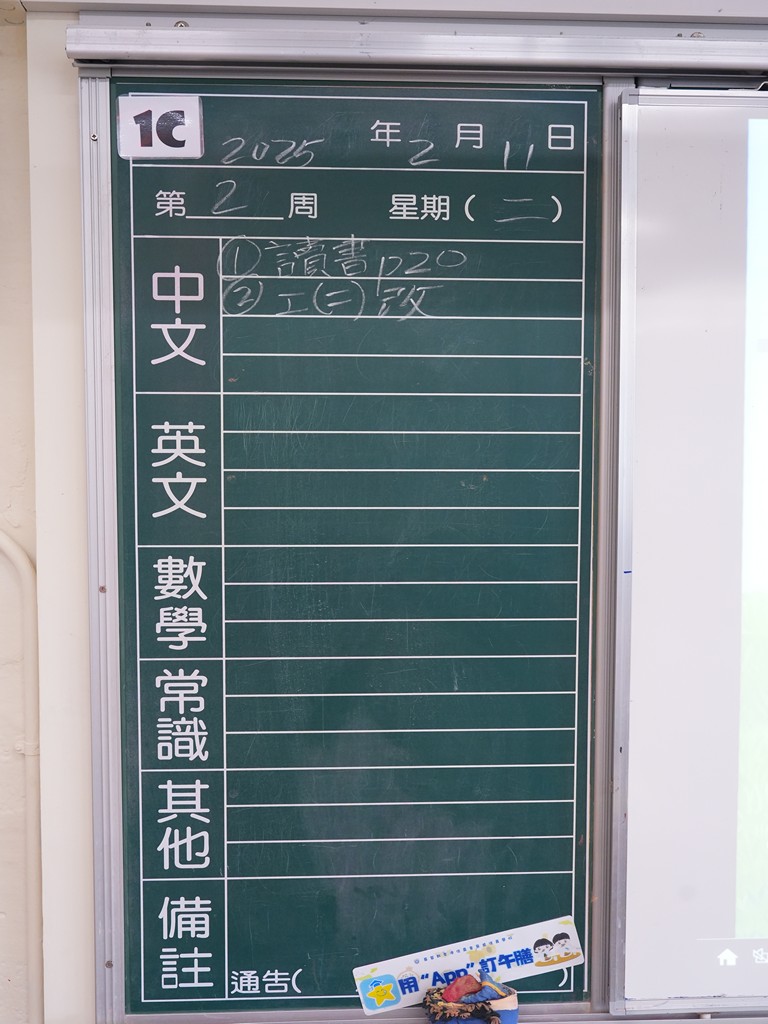 1C
2025 年 2 月 11 日
第 2 周 星期 ( 二 )
中文
① 讀書 p20
② 工(二) 改
英文
數學
常識
其他
備註
通告(
)
用 “App” 訂午膳